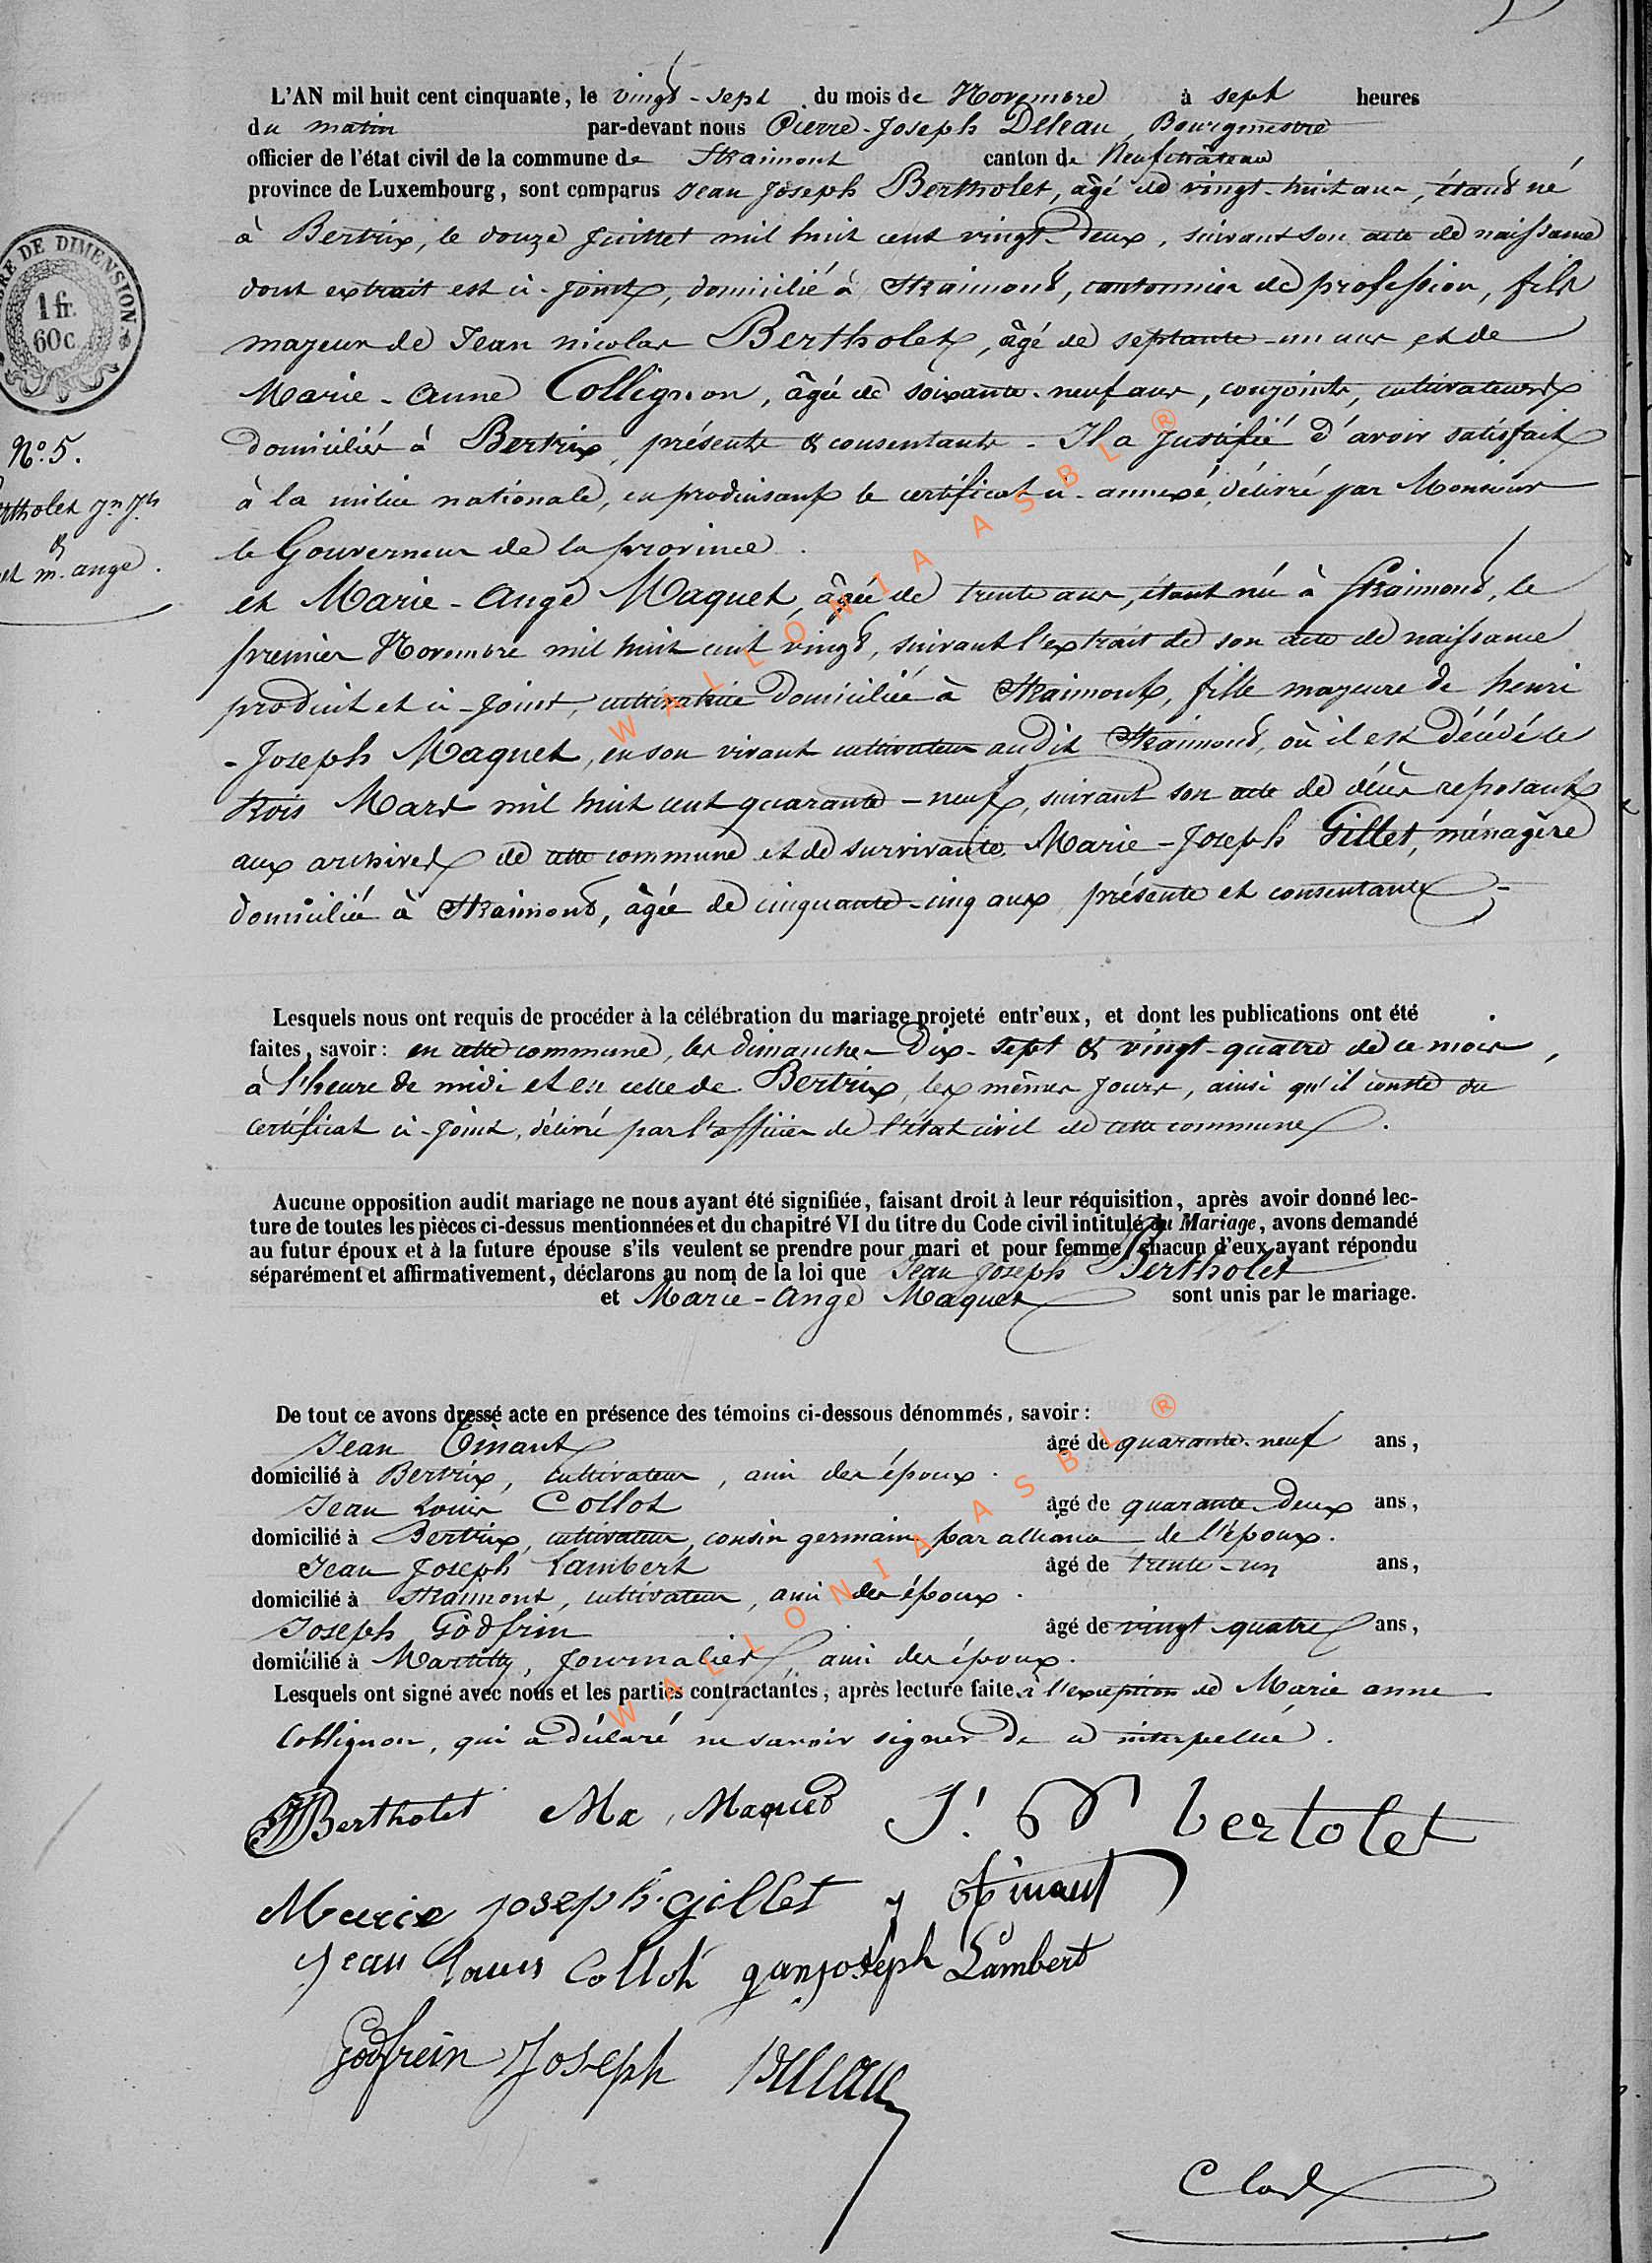 L'AN mil huit cent cinquante, le vingt-sept du mois de Novembre à sept heures
du matin par-devant nous Pierre-Joseph Deleau, Bourgmestre
officier de l'état civil de la commune de Straimont canton de Neufchâteau
province de Luxembourg, sont comparus Jean Joseph Bertholet, âgé de vingt-huit ans, étant né
à Bertrix, le douze Juillet mil huit cent vingt-deux, suivant son acte de naissance
dont extrait est ci-joint, domicilié à Straimont, cantonnier de profession, fils
majeur de Jean nicolas Bertholet, âgé de septante-un ans et de
Marie-Anne Collignon, âgée de soixante-neuf ans, conjoints, cultivateurs
domiciliés à Bertrix, présents & consentants - Il a justifié d'avoir satisfait
à la milice nationale, en produisant le certificat ci-annexé, délivré par Monsieur
le Gouverneur de la province.
et Marie-Ange Maquet, âgée de trente ans, étant née à Straimont, le
premier Novembre mil huit cent vingt, suivant l'extrait de son acte de naissance
produit et ci-joint, cultivatrice domiciliée à Straimont, fille majeure de henri
-Joseph Maquet, en son vivant cultivateur audit Straimont, où il est décédé le
trois Mars mil huit cent quarante-neuf, suivant son acte de décès reposant
aux archives de cette commune et de survivante Marie-Joseph Gillet, ménagère
domiciliée à Straimont, âgée de cinquante-cinq ans présente et consentante -
Lesquels nous ont requis de procéder à la célébration du mariage projeté entr'eux, et dont les publications ont été
faites, savoir: en cette commune, les dimanches Dix-sept & vingt-quatre de ce mois,
à l'heure de midi et en celle de Bertrix, les mêmes jours, ainsi qu'il conste du
certificat ci-joint, délivré par l'officier de l'état civil de cette commune.
Aucune opposition audit mariage ne nous ayant été signifiée, faisant droit à leur réquisition, après avoir donné lec-
ture de toutes les pièces ci-dessus mentionnées et du chapitre VI du titre du Code civil intitulé du Mariage, avons demandé
au futur époux et à la future épouse s'ils veulent se prendre pour mari et pour femme, chacun d'eux ayant répondu
séparément et affirmativement, déclarons au nom de la loi que Jean Joseph Bertholet
et Marie-Ange Maquet sont unis par le mariage.
De tout ce avons dressé acte en présence des témoins ci-dessous dénommés, savoir:
Jean Tinant âgé de quarante-neuf ans,
domicilié à Bertrix, cultivateur, ami des époux.
Jean Louis Collot âgé de quarante-Deux ans,
domicilié à Bertrix, cultivateur, cousin germain par alliance de l'époux.
Jean Joseph Lambert âgé de trente-un ans,
domicilié à Straimont, cultivateur, ami des époux.
Joseph Godfrin âgé de vingt-quatre ans,
domicilié à Martilly, Journalier, ami des époux.
Lesquels ont signé avec nous et les parties contractantes, après lecture faite à l'exception de Marie anne
Collignon, qui a déclaré ne savoir signer de ce interpellée.
JJBertholet Ma, Maquet J. N bertolet
Marie joseph gillet j tinant
jean louis Collot ganjoseph Lambert
Godfrein Joseph Deleau
RE DE DIMENSION
1 fr.
60 c
No. 5.
rtholet jn jph
&
et m. ange.
WALLONIA ASBL ®
WALLONIA ASBL ®